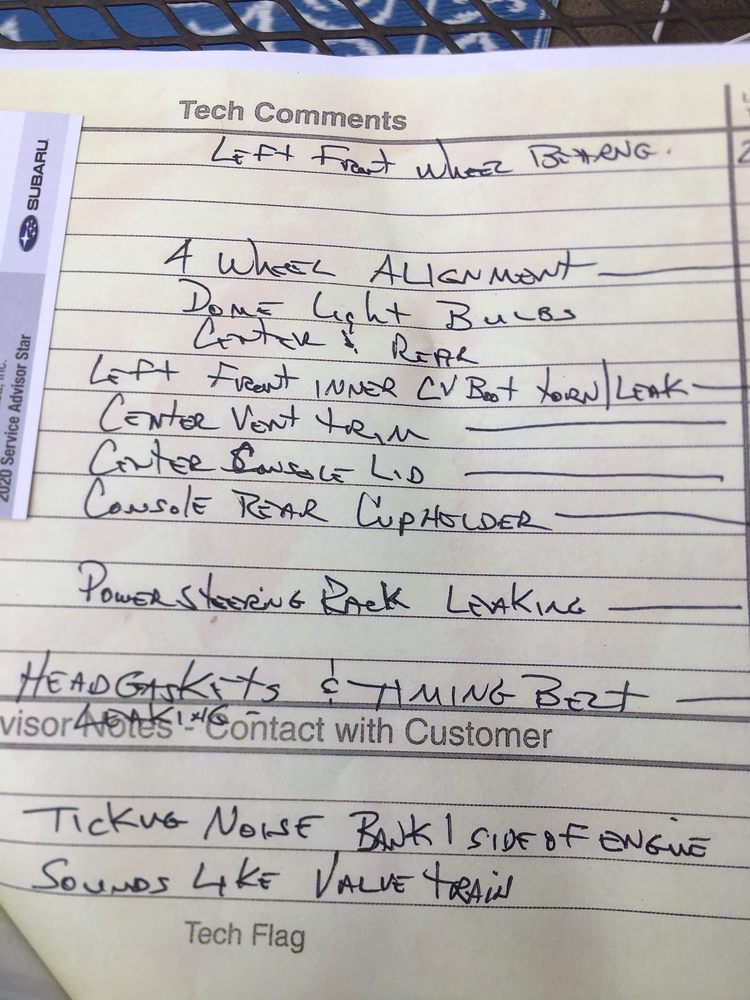 Tech Comments
LEFT FRONT WHEEL BEARNG.
SUBARU
4 WHEEL ALIGNMENT
DOME Light BULBS
CENTER & REAR
LEFT FRONT INNER CV Boot TORN/LEAK
CENTER VENT TRIM
CENTER CONSOLE LID
CONSOLE REAR CUPHOLDER
2020 Service Advisor Star
POWER STEERING RACK LEAKING
HEADGASKETS & TIMING BELT
LEAKING -
visor Notes - Contact with Customer
TICKING NOISE BANK 1 SIDE OF ENGINE
SOUNDS LIKE VALVE TRAIN
Tech Flag